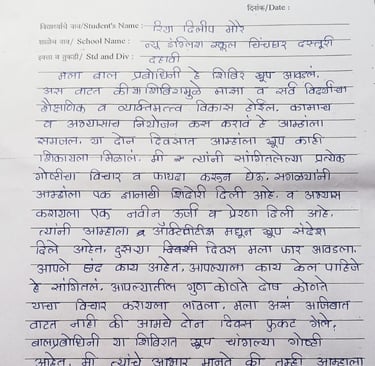 दिनांक/Date :
विद्यार्थ्याचे नाव/Student's Name : रिया दिलीप मोरे
शाळेचे नाव/ School Name : न्यू इंग्लिश स्कूल चिंचघर दस्तूरी
इयत्ता व तुकडी/ Std and Div : दहावी
मला बाल प्रबोधिनी हे शिबिर खूप आवडलं.
असं वाटतं की या शिबिरामुळे माझा व सर्व विद्यार्थ्यांचा
शैक्षणिक व व्यक्तिमत्त्व विकास होईल. कामाचं
व अभ्यासाचं नियोजन कसं करावं हे आम्हांला
समजलं. या दोन दिवसांत आम्हांला खूप काही
शिकायला मिळालं. मी त्यांनी सांगितलेल्या प्रत्येक
गोष्टीचा विचार व फायदा करून घेऊ. सगळ्यांनी
आम्हांला एक ज्ञानाची शिदोरी दिली आहे. व अभ्यास
करायला एक नवीन ऊर्जा व प्रेरणा दिली आहे.
त्यांनी आम्हाला ॲक्टिव्हिटीज मधून खूप संदेश
दिले आहेत. दुसरा दिवस मला फार आवडला.
आपले छंद काय आहेत, आपल्याला काय केलं पाहिजे
हे सांगितलं. आपल्यातील गुण कोणते दोष कोणते
याचा विचार करायला लावला. मला असं अजिबात
वाटत नाही की आमचे दोन दिवस फुकट गेले.
बालप्रबोधिनी या शिबिरात खूप चांगल्या गोष्टी
आहेत. मी त्यांचे आभार मानते की तुम्ही आम्हाला